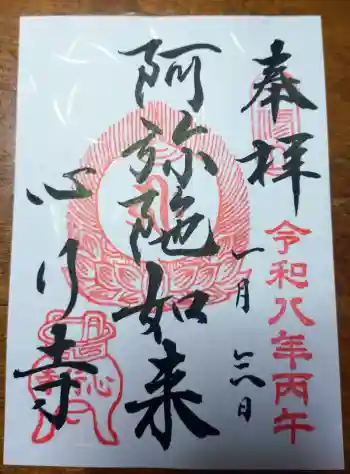 奉拝
令和八年丙午
一月 三日
阿弥陀如来
心行寺